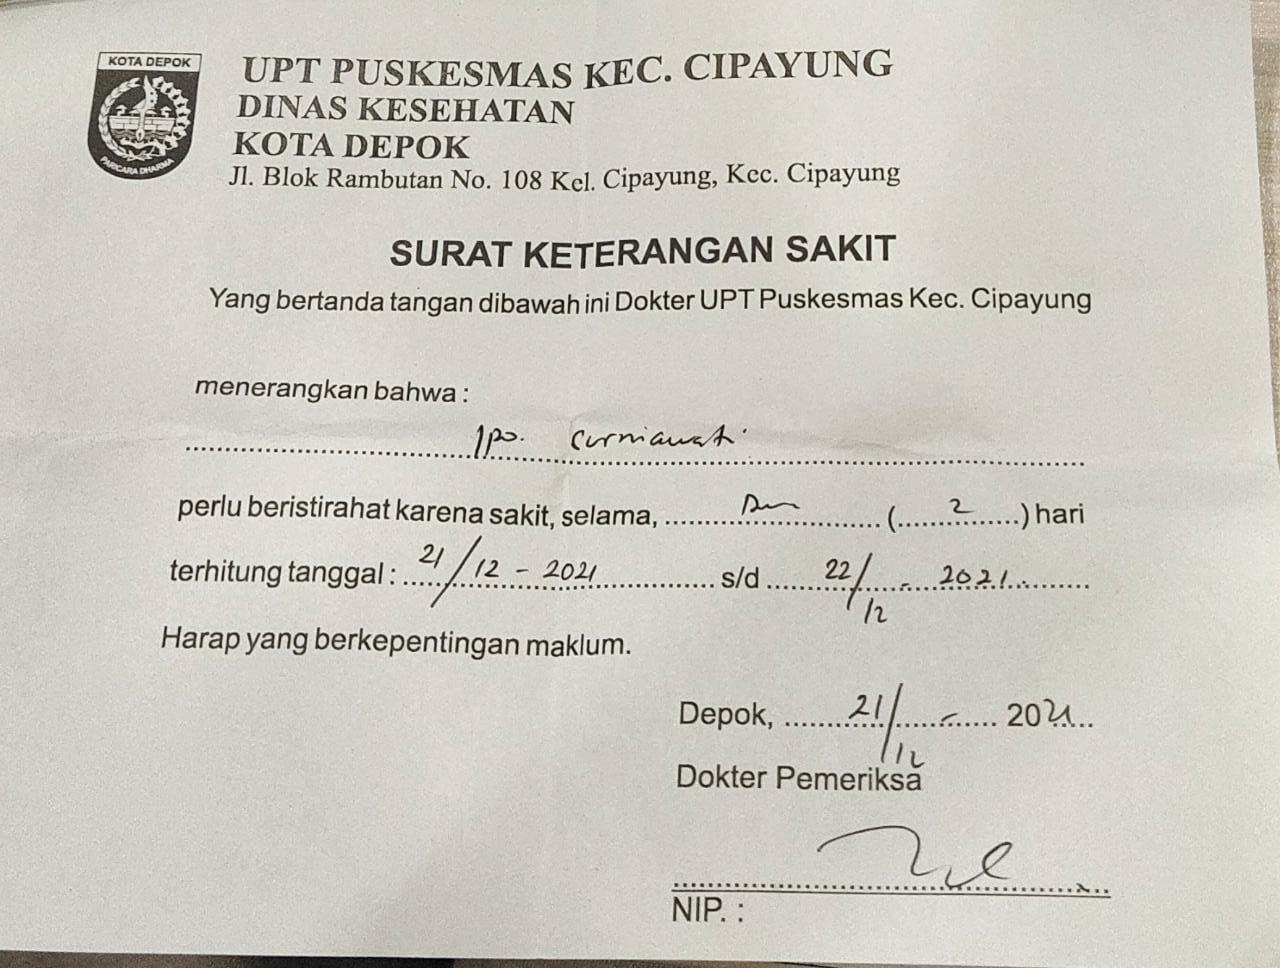 KOTA DEPOK
PARICARA DHARMA
UPT PUSKESMAS KEC. CIPAYUNG
DINAS KESEHATAN
KOTA DEPOK
Jl. Blok Rambutan No. 108 Kel. Cipayung, Kec. Cipayung
SURAT KETERANGAN SAKIT
Yang bertanda tangan dibawah ini Dokter UPT Puskesmas Kec. Cipayung
menerangkan bahwa :
Curniawati
perlu beristirahat karena sakit, selama, ........ (.... 2 ....) hari
terhitung tanggal : 21/12 - 2021 s/d 22/12 - 2021
Harap yang berkepentingan maklum.
Depok, 21/12 - 2021
Dokter Pemeriksa
NIP. :